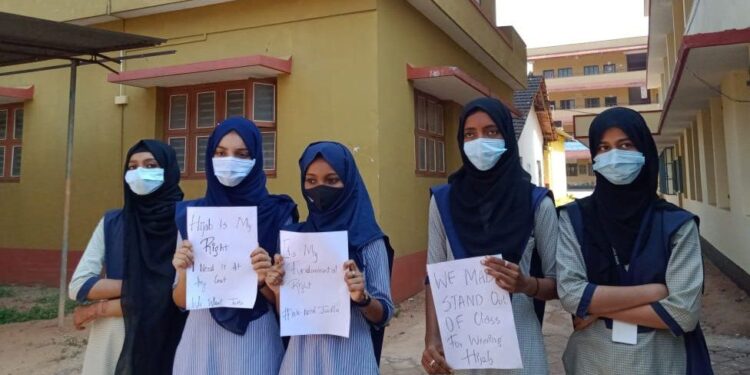 Hijab Is My
Right
I Need It At
Any Cost
We Want Justice
Its My
Fundamental
Right
#We need Justice
WE MADE
STAND OUT
OF Class
For Wearing
Hijab